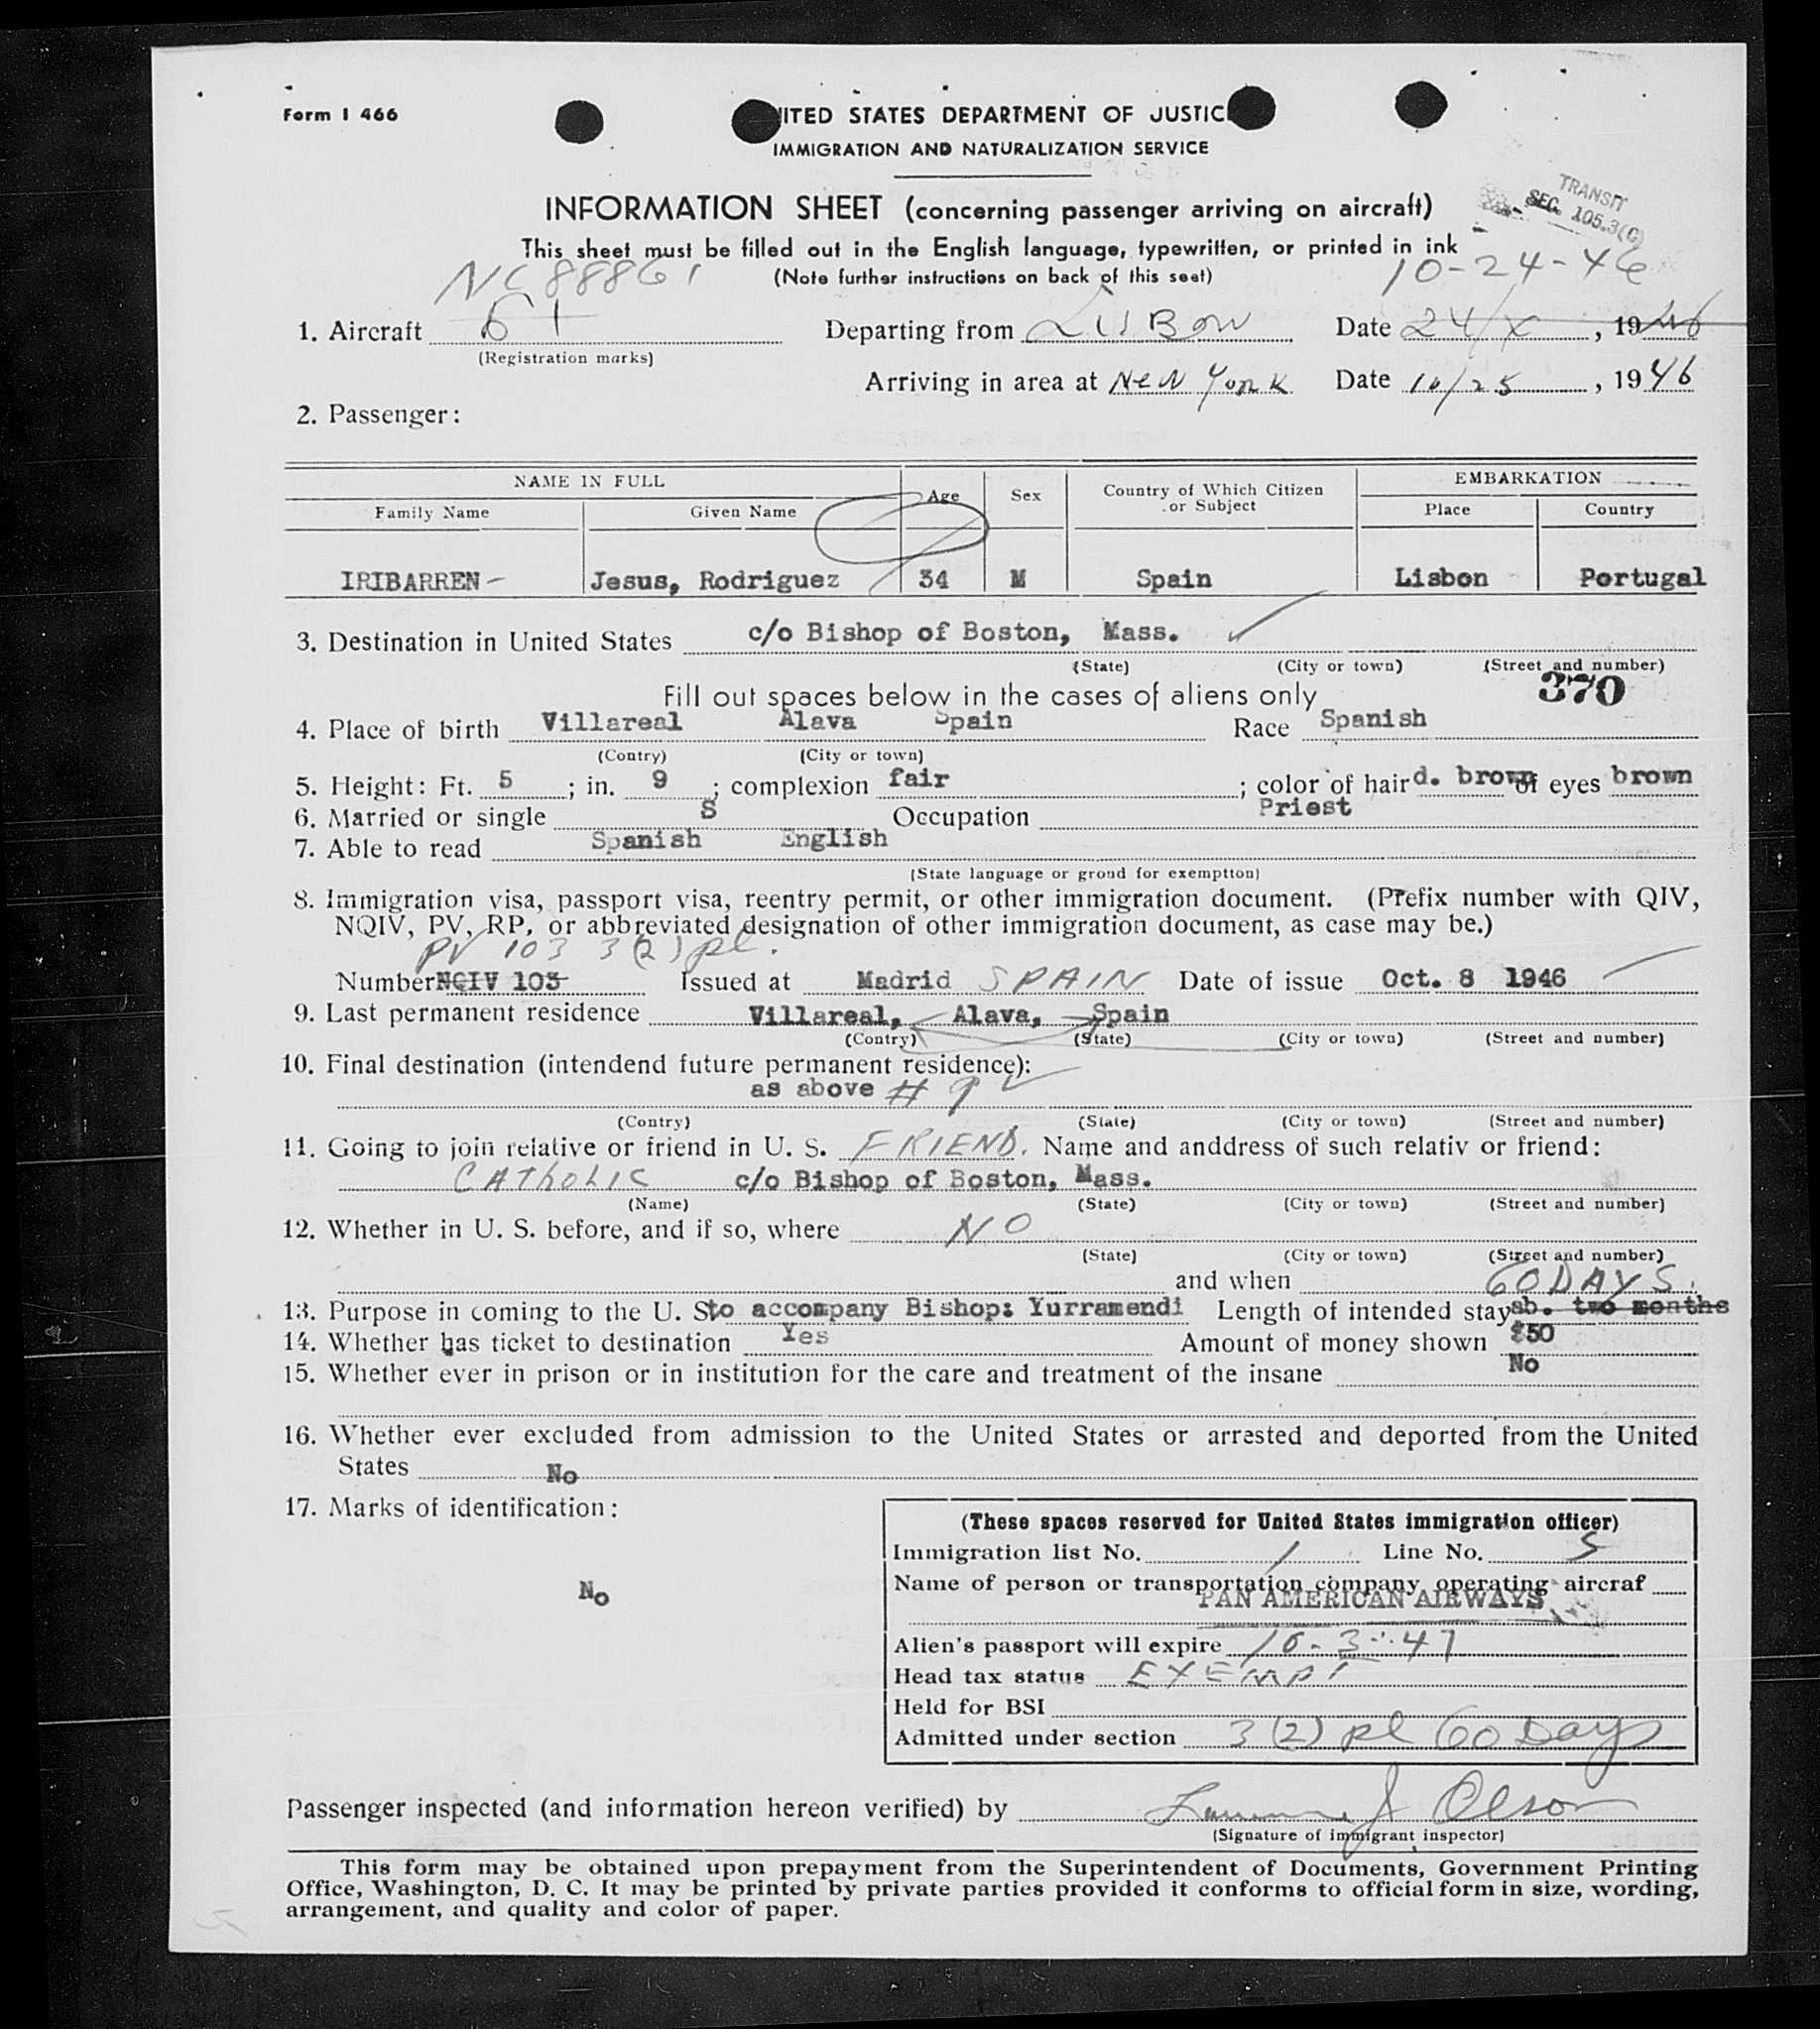 Form I 466
UNITED STATES DEPARTMENT OF JUSTICE
IMMIGRATION AND NATURALIZATION SERVICE
INFORMATION SHEET (concerning passenger arriving on aircraft)
TRANSIT
SEC. 105.3(C)
This sheet must be filled out in the English language, typewritten, or printed in ink
(Note further instructions on back of this seet)
NC 88861
10-24-46
1. Aircraft 61 Departing from LISBON Date 24/X, 1946
(Registration marks)
Arriving in area at NEW YORK Date 10/25, 1946
2. Passenger:
NAME IN FULL Age Sex Country of Which Citizen or Subject EMBARKATION
Family Name Given Name Place Country
IRIBARREN- Jesus, Rodriguez 34 M Spain Lisbon Portugal
3. Destination in United States c/o Bishop of Boston, Mass.
(State) (City or town) (Street and number)
Fill out spaces below in the cases of aliens only 370
4. Place of birth Villareal Alava Spain Race Spanish
(Contry) (City or town)
5. Height: Ft. 5; in. 9; complexion fair; color of hair d. brown of eyes brown
6. Married or single S Occupation Priest
7. Able to read Spanish English
(State language or groud for exemptton)
8. Immigration visa, passport visa, reentry permit, or other immigration document. (Prefix number with QIV,
NQIV, PV, RP, or abbreviated designation of other immigration document, as case may be.)
PV 103 3(2) pl.
Number NQIV 103 Issued at Madrid SPAIN Date of issue Oct. 8 1946
9. Last permanent residence Villareal, Alava, Spain
(Contry) (State) (City or town) (Street and number)
10. Final destination (intendend future permanent residence):
as above # 9
(Contry) (State) (City or town) (Street and number)
11. Going to join relative or friend in U. S. FRIEND. Name and anddress of such relativ or friend:
CATHOLIC c/o Bishop of Boston, Mass.
(Name) (State) (City or town) (Street and number)
12. Whether in U. S. before, and if so, where NO
(State) (City or town) (Street and number)
and when 60 DAYS.
13. Purpose in coming to the U. S. to accompany Bishop: Yurramendi Length of intended stay ab. two months
14. Whether has ticket to destination Yes Amount of money shown $50
15. Whether ever in prison or in institution for the care and treatment of the insane No
16. Whether ever excluded from admission to the United States or arrested and deported from the United
States No
17. Marks of identification:
No
(These spaces reserved for United States immigration officer)
Immigration list No. 1 Line No. 5
Name of person or transportation company operating aircraf
PAN AMERICAN AIRWAYS
Alien's passport will expire 10-3-47
Head tax status EXEMPT
Held for BSI
Admitted under section 3(2) pl 60 Days
Passenger inspected (and information hereon verified) by J Olson
(Signature of immigrant inspector)
This form may be obtained upon prepayment from the Superintendent of Documents, Government Printing
Office, Washington, D. C. It may be printed by private parties provided it conforms to official form in size, wording,
arrangement, and quality and color of paper.